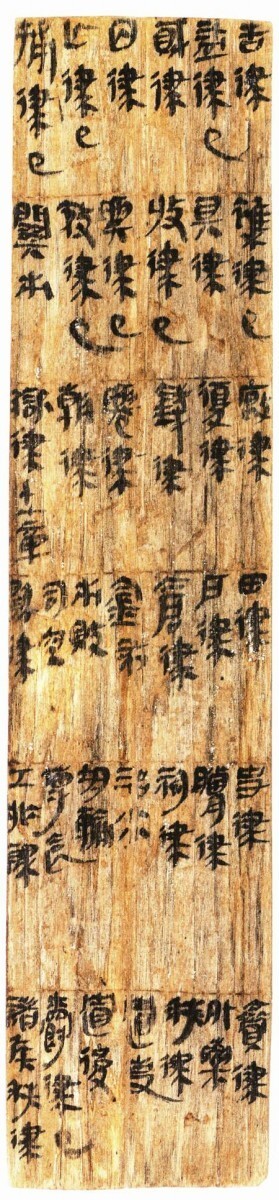 告律
盜律㇄
賊律
囚律
亡律㇄
捕律㇄
雜律㇄
具律
收律㇄
興律㇄
效律㇄
關市
廄律
復律
錢律
遷律
朝律
獄律十七章
田律
戶律
倉律
金布
市販
司空
繇律
史律
臘律
祠律
治水
均輸
傳食
工作課
賫律
外樂
秩律
置吏
置後
爵律㇄
諸侯秩律